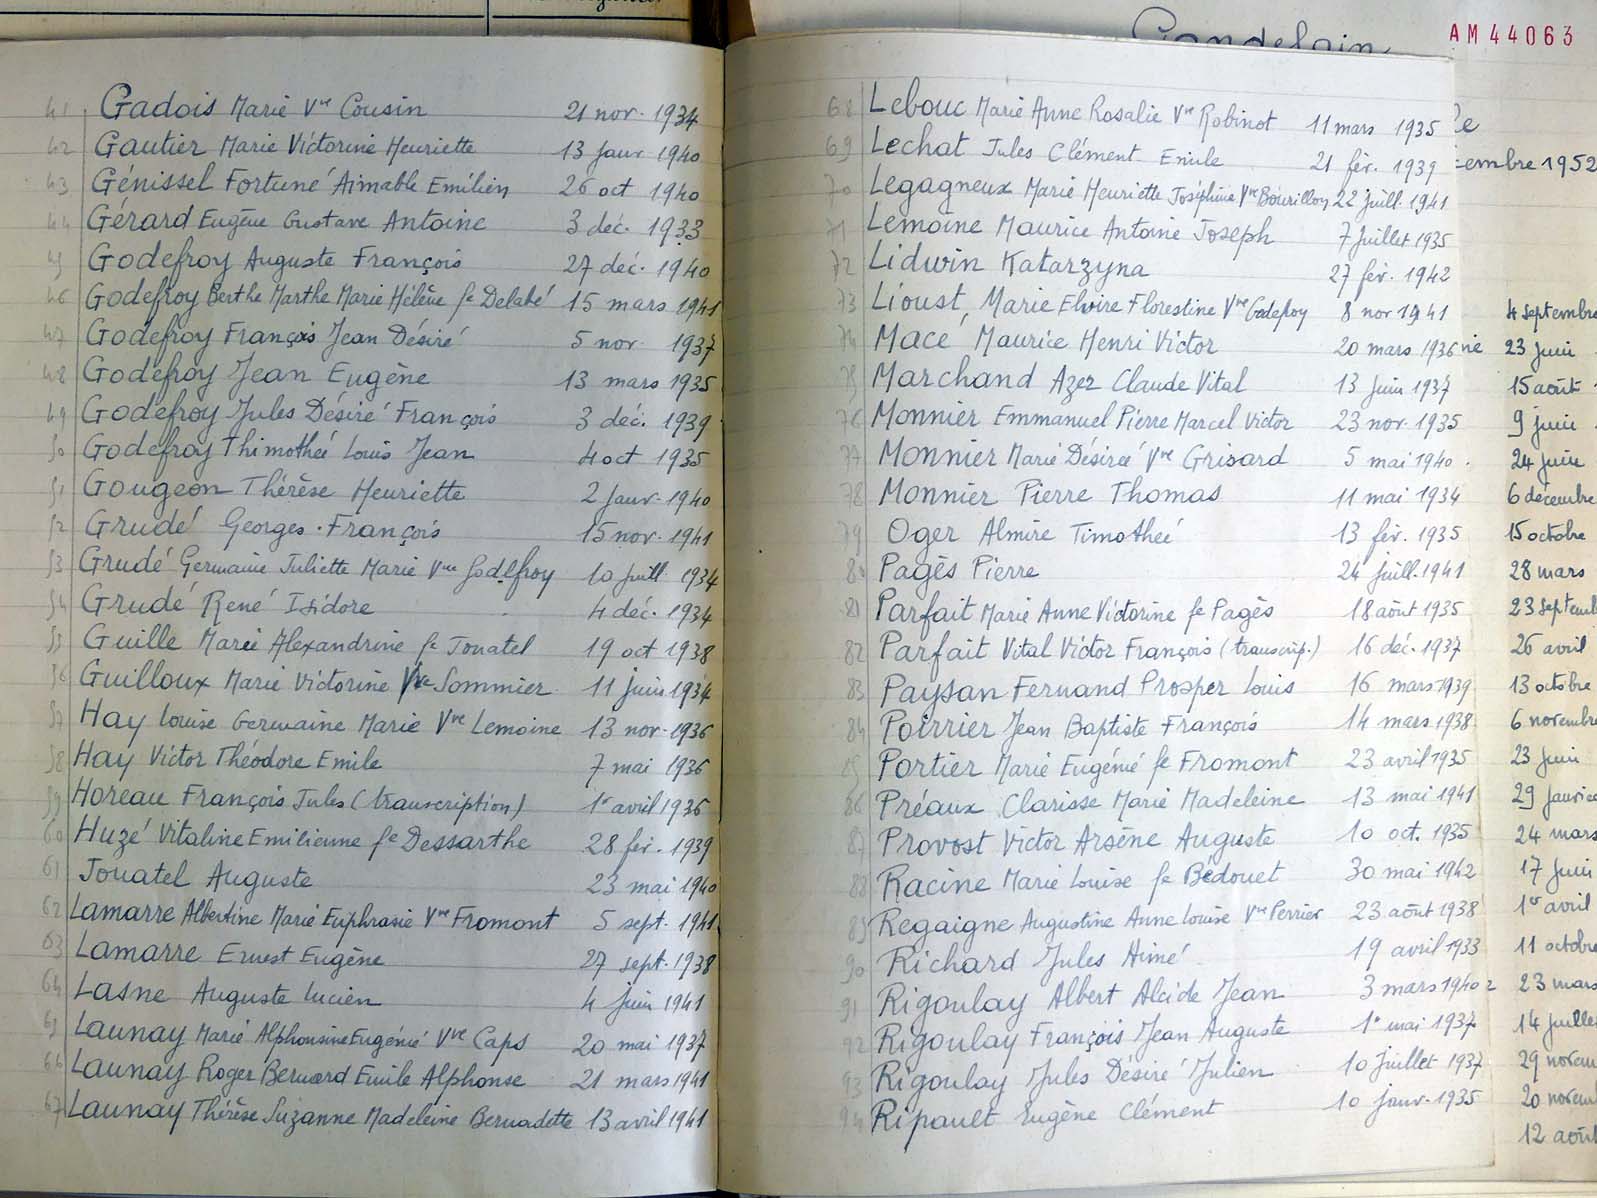 41 Gadois Marie Vve Cousin 21 nov. 1934
42 Gautier Marie Victorine Henriette 13 janv 1940
43 Génissel Fortuné Aimable Emilien 26 oct 1940
44 Gérard Eugène Gustave Antoine 3 déc. 1933
45 Godefroy Auguste François 27 déc. 1940
46 Godefroy Berthe Marthe Marie Hélène fe Delabé 15 mars 1941
47 Godefroy François Jean Désiré 5 nov 1937
48 Godefroy Jean Eugène 13 mars 1935
49 Godefroy Jules Désiré François 3 déc. 1939
50 Godefroy Thimothée Louis Jean 4 oct 1935
51 Gougeon Thérèse Henriette 2 janv. 1940
52 Grudé Georges. François 15 nov. 1941
53 Grudé Germaine Juliette Marie Vve Godefroy 10 juill 1934
54 Grudé René Isidore 4 déc. 1934
55 Guille Marie Alexandrine fe Jouatel 19 oct 1938
56 Guilloux Marie Victorine Vve Sommier 11 juin 1934
57 Hay Louise Germaine Marie Vve Lemoine 13 nov. 1936
58 Hay Victor Théodore Emile 7 mai 1936
59 Horeau François Jules (transcription) 1er avril 1936
60 Huzé Vitaline Emilienne fe Dessarthe 28 fév. 1939
61 Jouatel Auguste 23 mai 1940
62 Lamarre Albertine Marie Euphrasie Vve Fromont 5 sept. 1941
63 Lamarre Ernest Eugène 27 sept. 1938
64 Lasne Auguste Lucien 4 juin 1941
65 Launay Marie Alphonsine Eugénie Vve Caps 20 mai 1937
66 Launay Roger Bernard Emile Alphonse 21 mars 1941
67 Launay Thérèse Suzanne Madeleine Bernadette 13 avril 1941
Gandelain
AM44063
68 Lebouc Marie Anne Rosalie Vve Robinot 11 mars 1935
69 Lechat Jules Clément Emile 21 fév. 1939
cembre 1952
70 Legagneux Marie Henriette Joséphine Vve Bourillon 22 juill. 1941
71 Lemoine Maurice Antoine Joseph 7 juillet 1935
72 Lidwin Katarzyna 27 fév. 1942
73 Lioust Marie Elvire Florestine Vve Godefroy 8 nov 1941
4 septembre
74 Macé Maurice Henri Victor 20 mars 1936
23 juin
75 Marchand Azez Claude Vital 13 juin 1937
15 août
76 Monnier Emmanuel Pierre Marcel Victor 23 nov. 1935
9 juin
77 Monnier Marie Désirée Vve Grisard 5 mai 1940.
24 juin
78 Monnier Pierre Thomas 11 mai 1934
6 décembre
79 Oger Almire Timothée 13 fév. 1935
15 octobre
80 Pagès Pierre 24 juill. 1941
28 mars
81 Parfait Marie Anne Victorine fe Pagès 18 août 1935
23 septemb
82 Parfait Vital Victor François (transcrip.) 16 déc. 1937
26 avril
83 Paysan Fernand Prosper Louis 16 mars 1939
13 octobre
84 Poirrier Jean Baptiste François 14 mars 1938
6 novembre
85 Portier Marie Eugénie fe Fromont 23 avril 1935
23 juin
86 Préaux Clarisse Marie Madeleine 13 mai 1941
29 janvie
87 Provost Victor Arsène Auguste 10 oct. 1935
24 mars
88 Racine Marie Louise fe Bedouet 30 mai 1942
17 juin
89 Regaigne Augustine Anne Louise Vve Perrier 23 août 1938
1er avril
90 Richard Jules Aimé 19 avril 1933
11 octobre
91 Rigoulay Albert Alcide Jean 3 mars 1940
23 mars
92 Rigoulay François Jean Auguste 1er mai 1937
14 juillet
93 Rigoulay Jules Désiré Julien 10 juillet 1937
29 novem
94 Ripault Eugène Clément 10 janv. 1935
20 novem
12 août